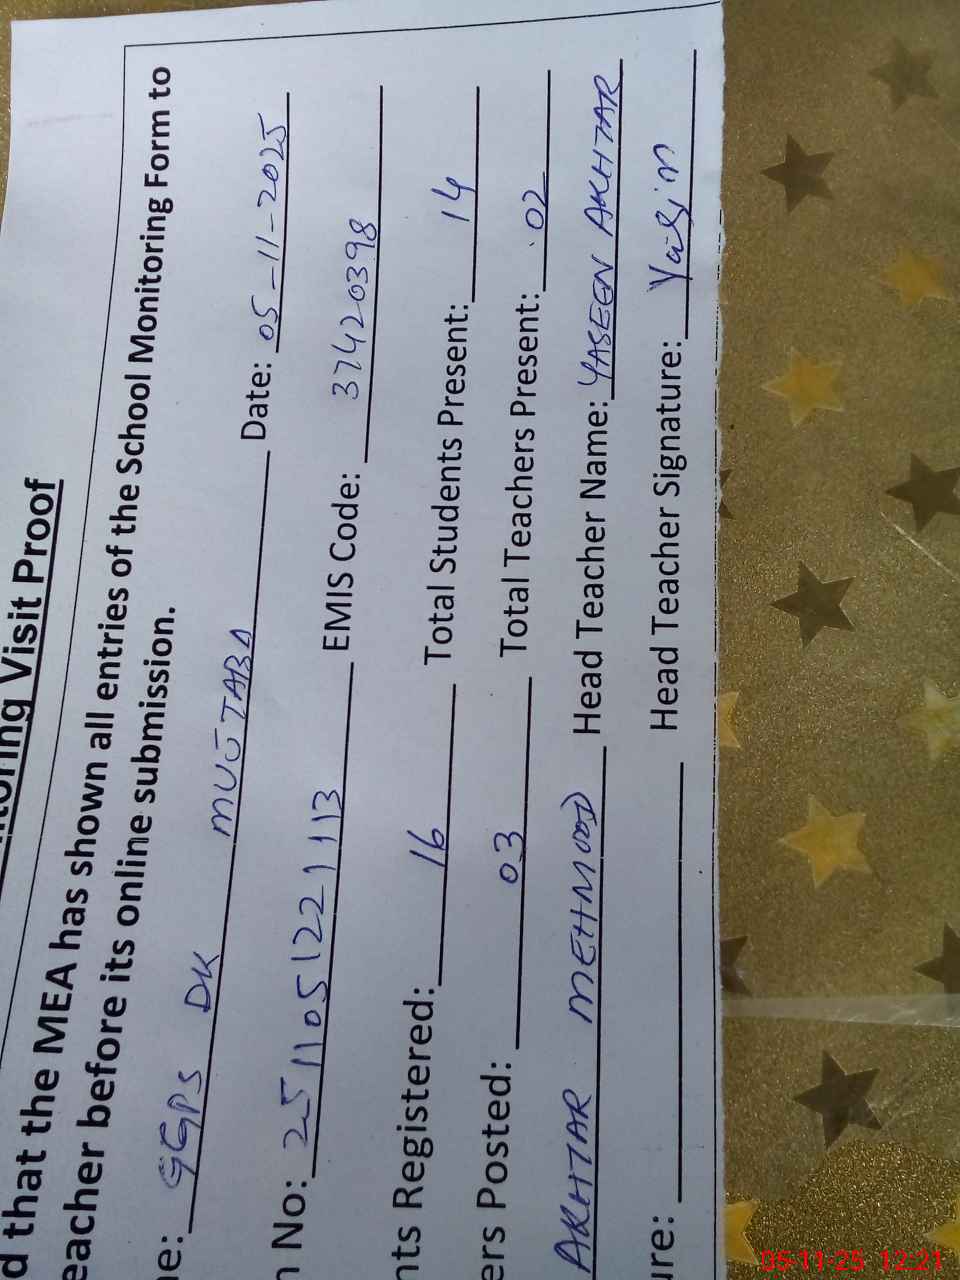 itoring Visit Proof
d that the MEA has shown all entries of the School Monitoring Form to
eacher before its online submission.
ne: GGPS DK MUJTABA Date: 05-11-2025
n No: 2511051221113 EMIS Code: 37420398
nts Registered: 16 Total Students Present: 14
ers Posted: 03 Total Teachers Present: 02
AKHTAR MEHMOOD Head Teacher Name: YASEEN AKHTAR
ure: Head Teacher Signature: Yasin
05-11-25 12:21